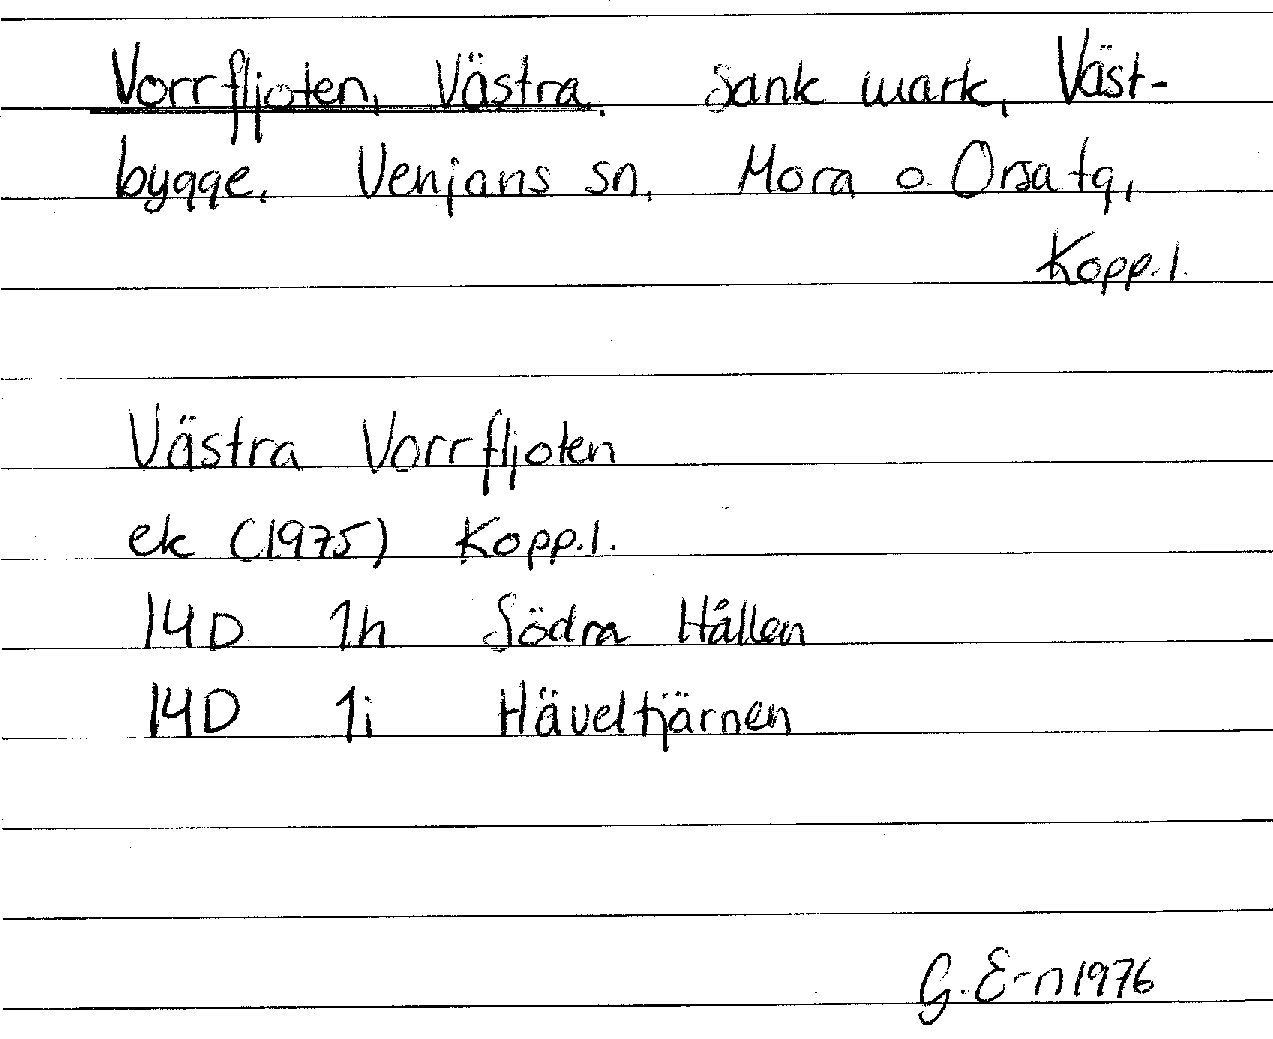 Vorrfljoten, Västra. Sank mark, Väst-
bygge. Venjans sn, Mora o. Orsa tg,
Kopp.l.
Västra Vorrfljoten
ek (1975) Kopp.l.
14D 1h Södra Hållen
14D 1i Häveltjärnen
G. E-n 1976